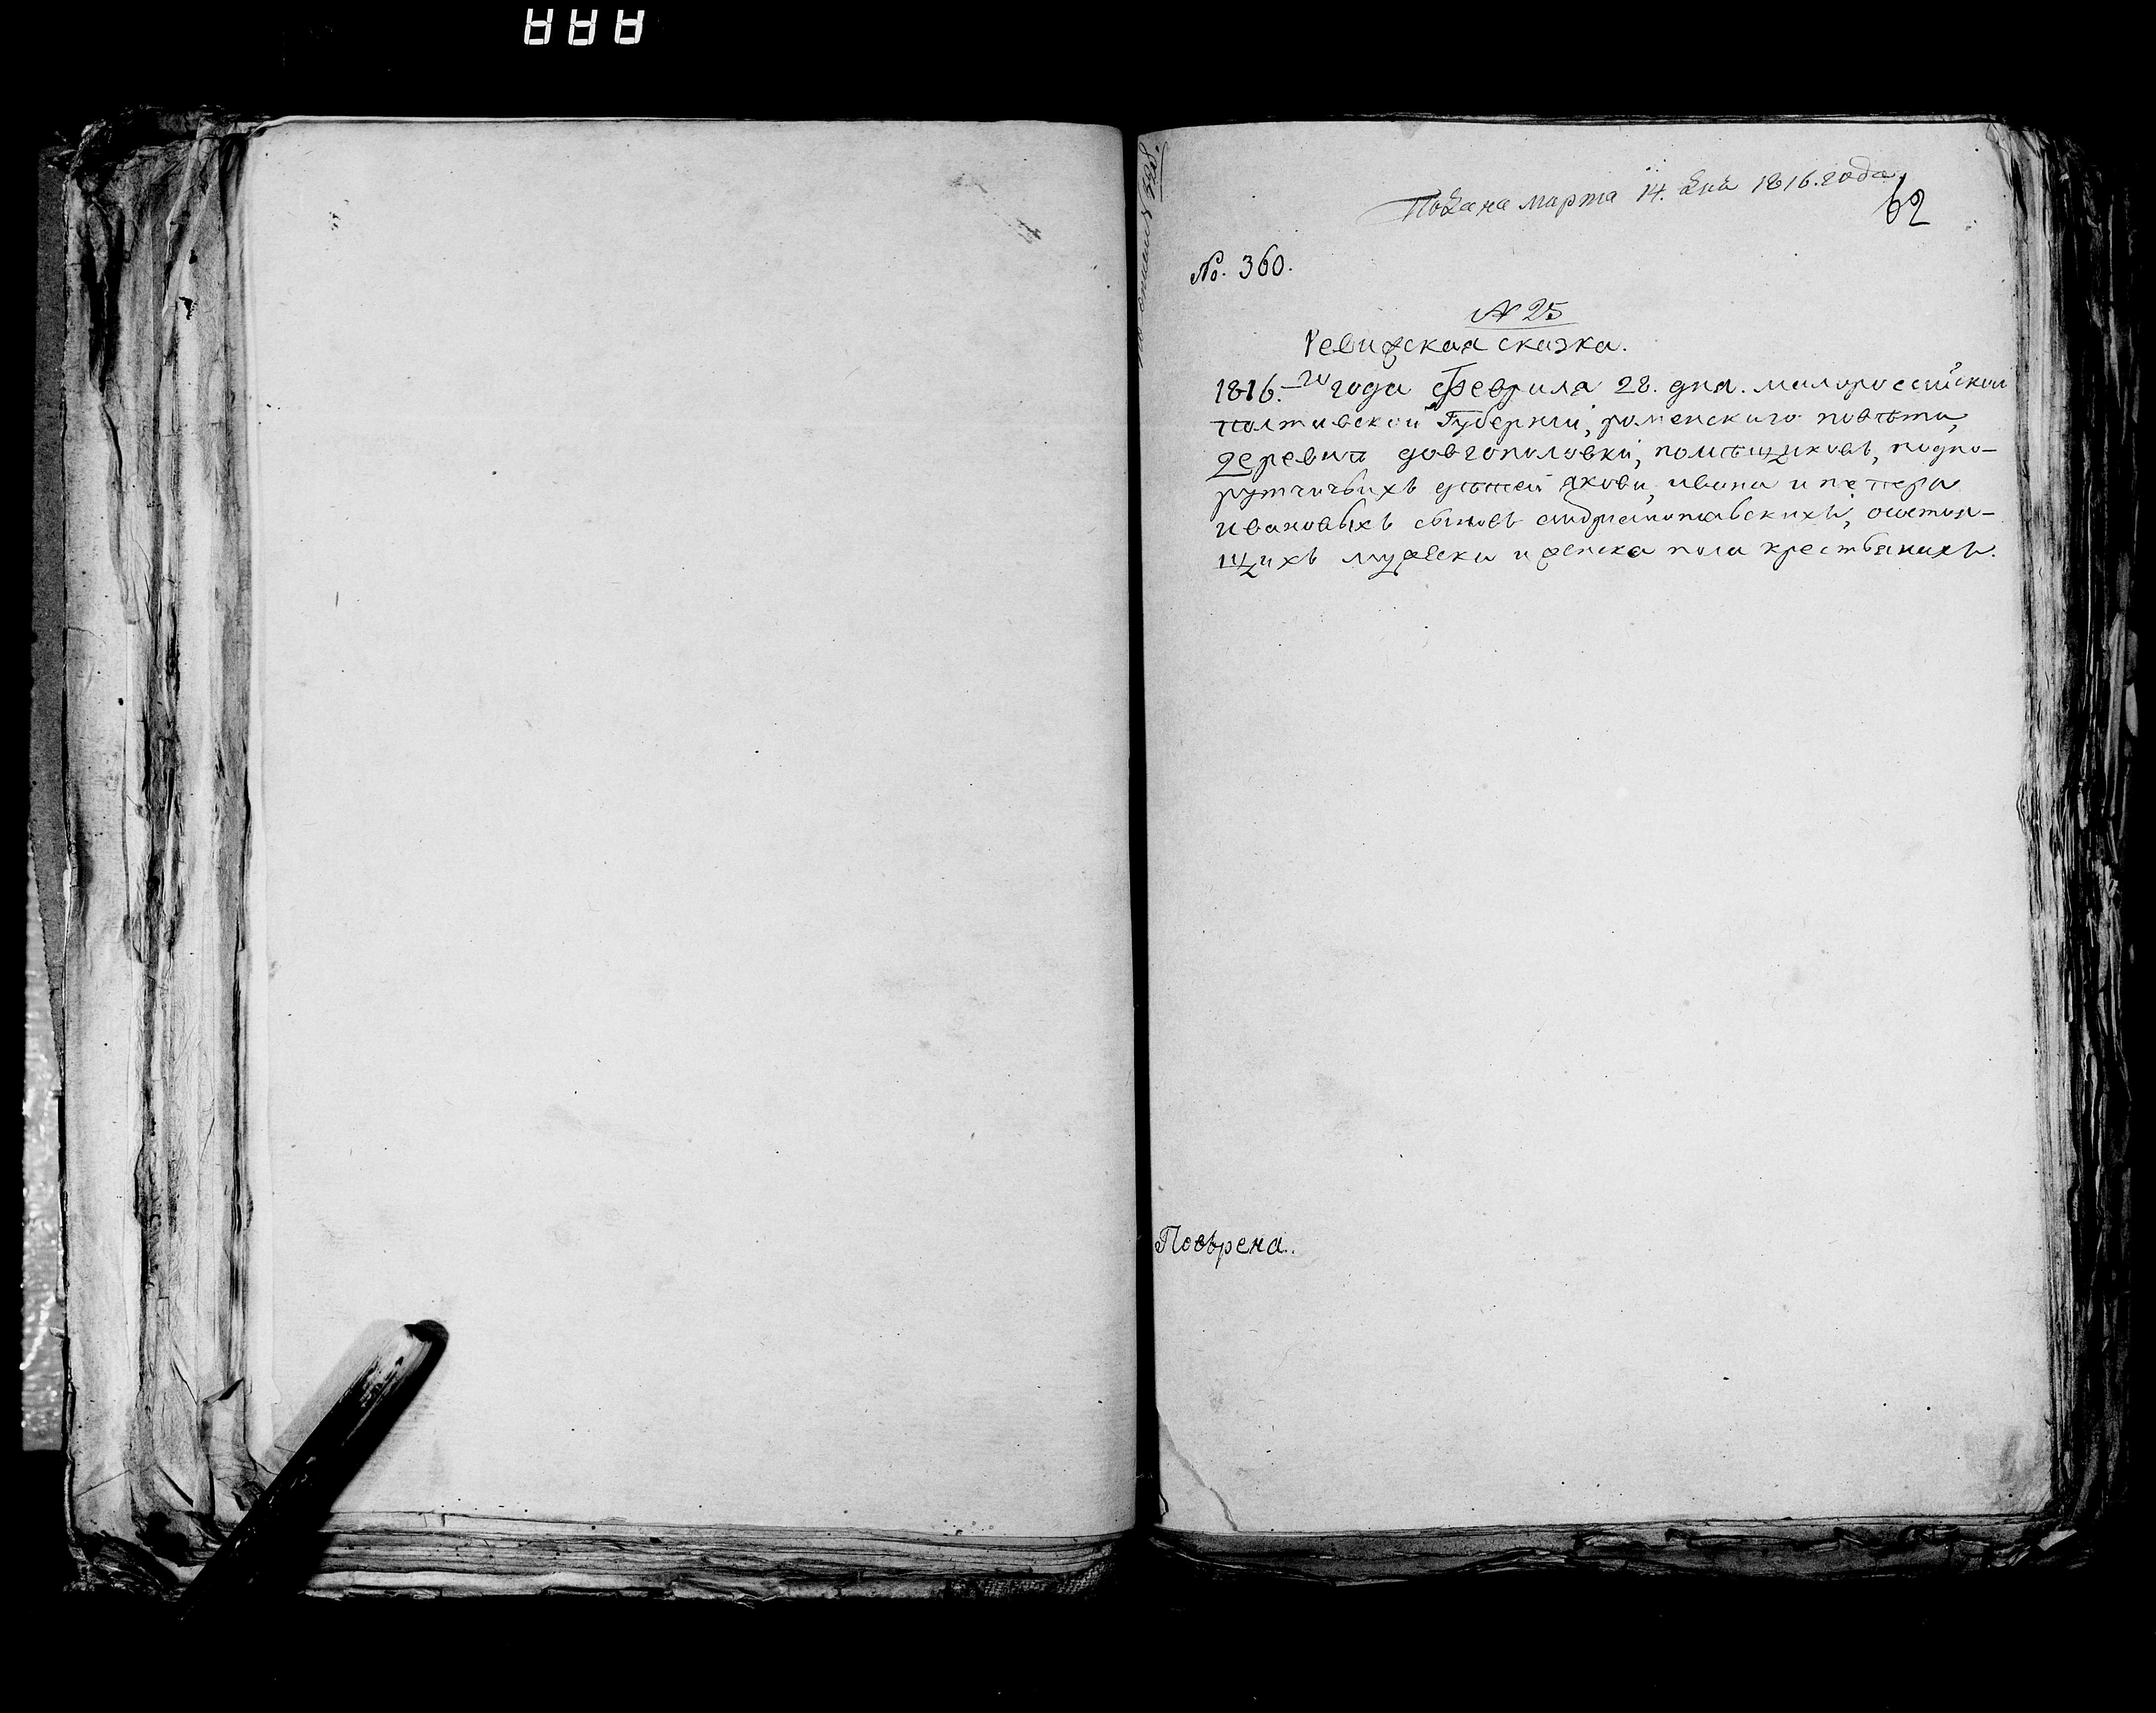 Подана марта 14. дня 1816. года,
62
No. 360.
N 25
Ревижская сказка.
1816.-го года Февраля 28. дня. малороссийской
полтавской Губернии, роменского повѣта,
деревни довгополовки, помѣщиковъ, подпо-
рутчичьихъ дѣтей якова, ивана и петра
ивановыхъ сыновъ андріяпотавскихъ, остоя-
щихъ мужеска и женска пола крестьянихъ.
Повѣрена.